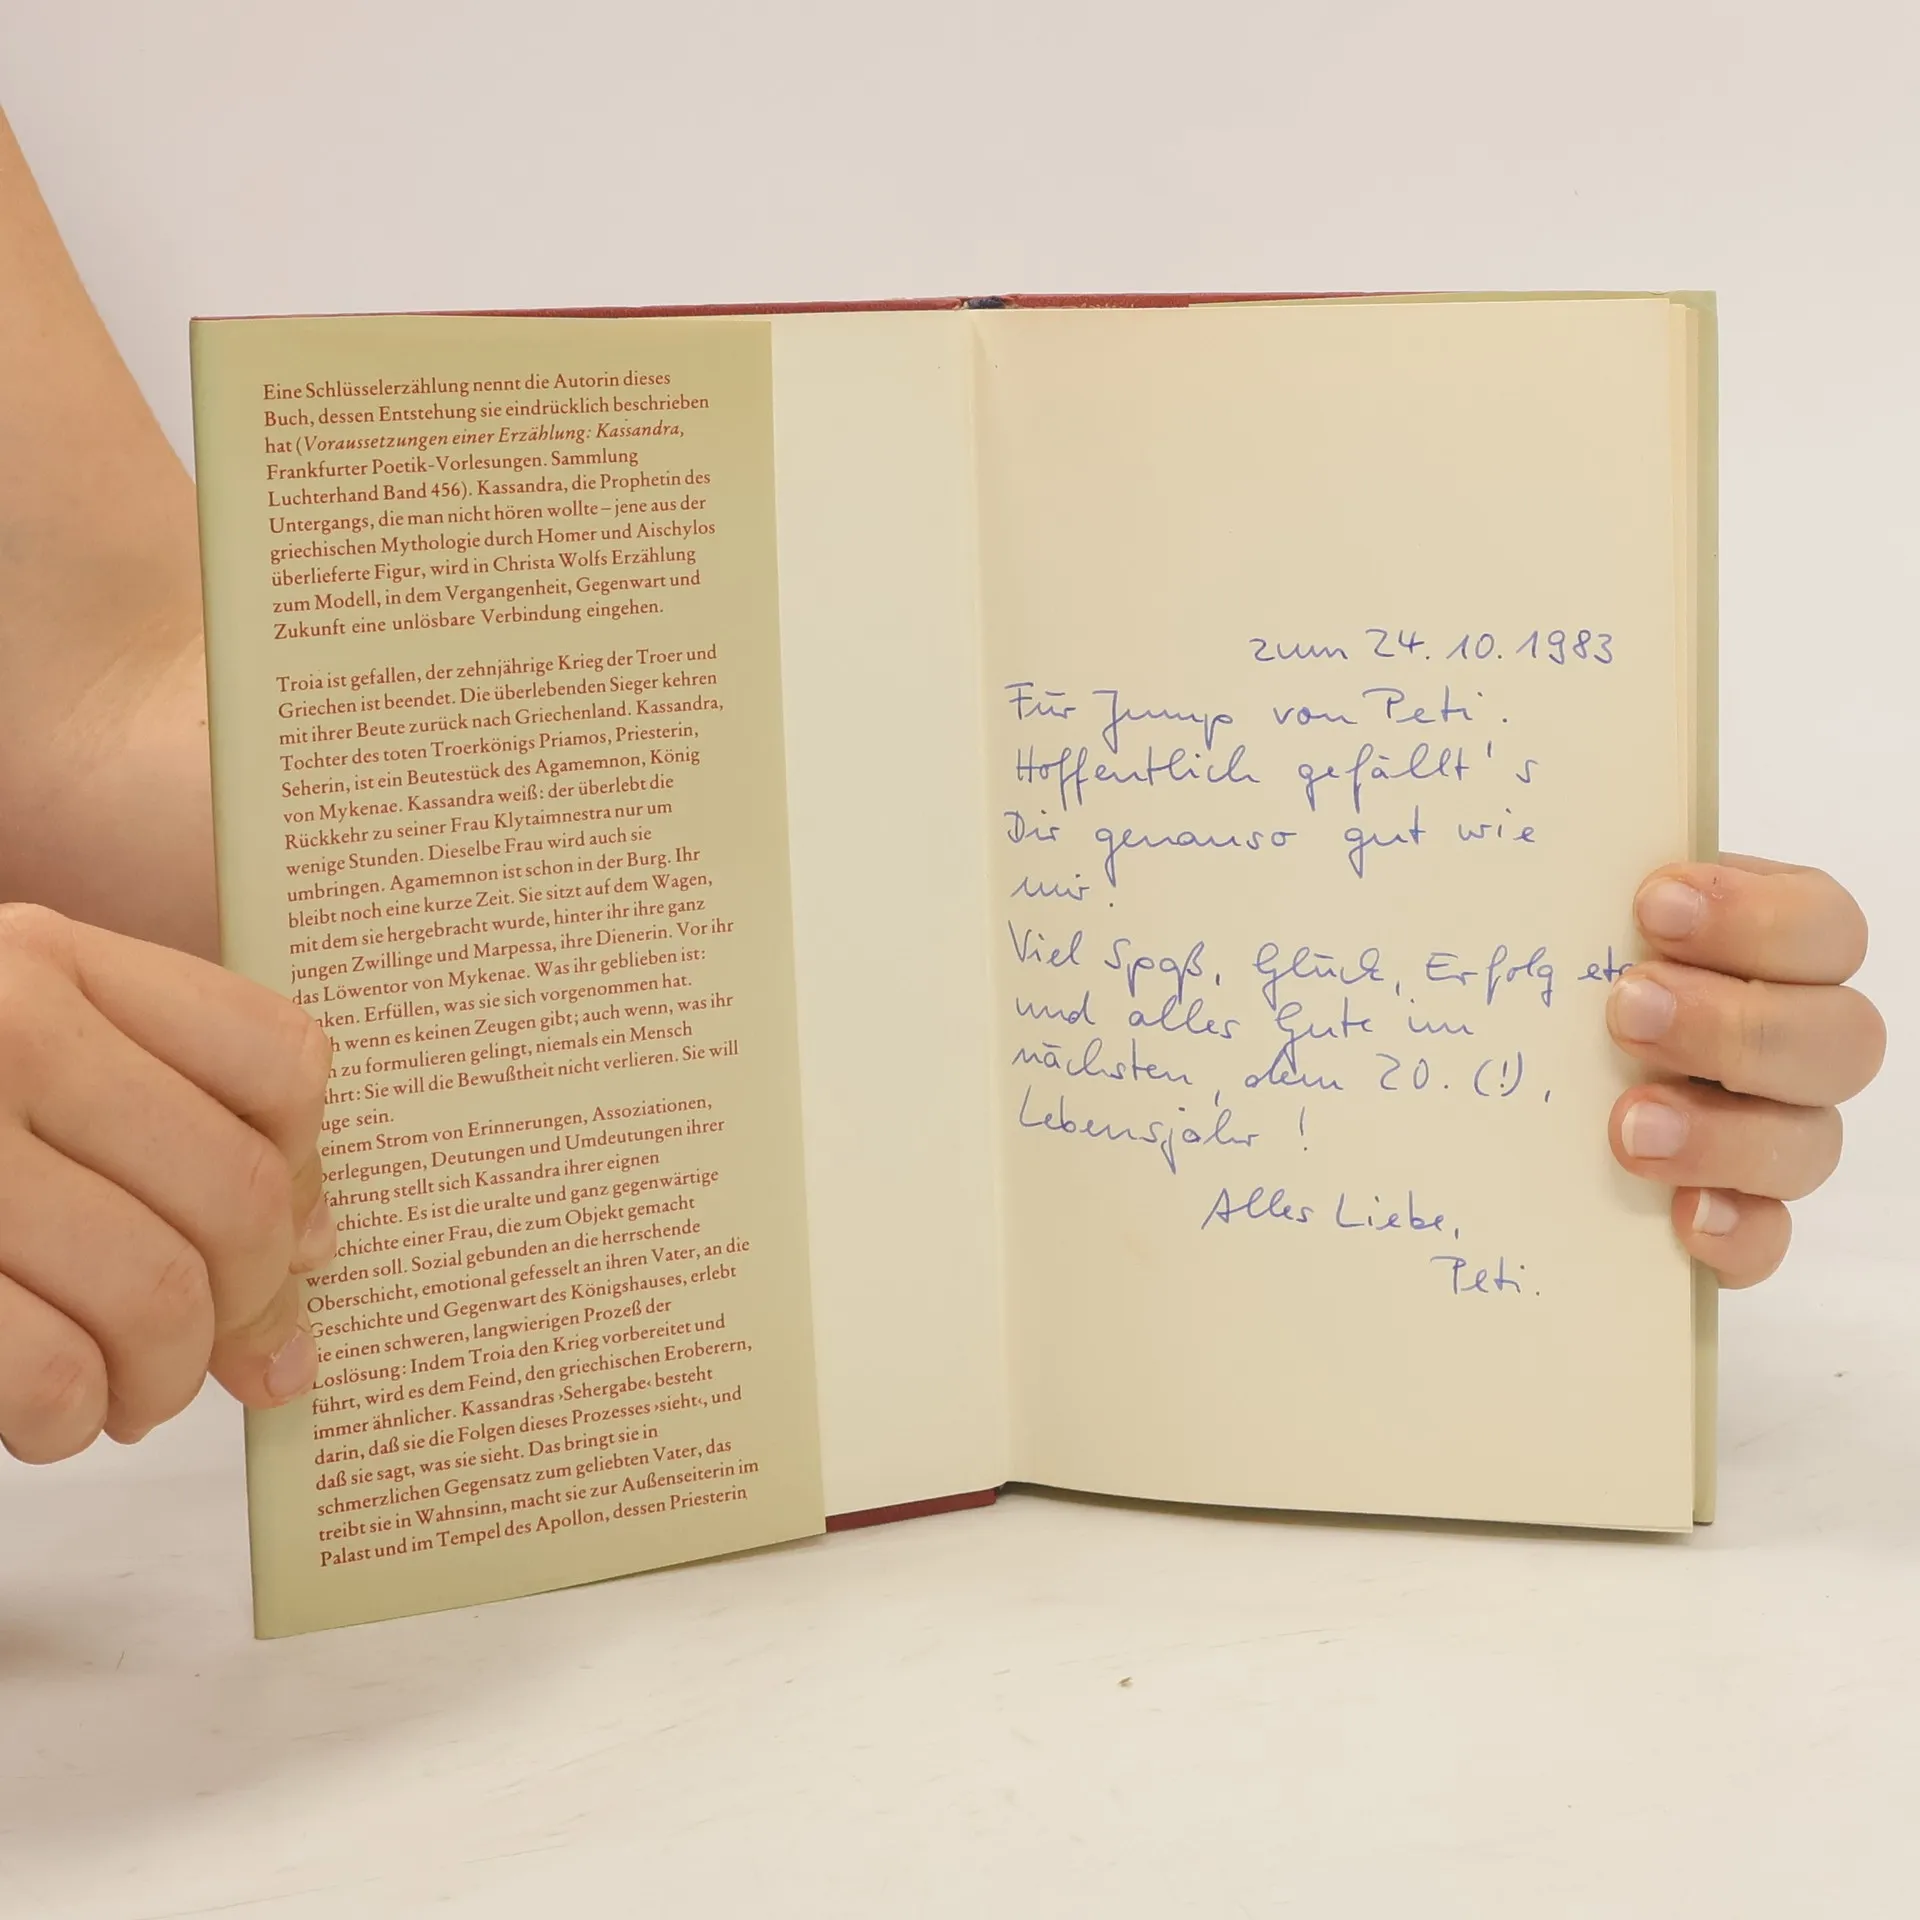 Eine Schlüsselerzählung nennt die Autorin dieses
Buch, dessen Entstehung sie eindrücklich beschrieben
hat (Voraussetzungen einer Erzählung: Kassandra,
Frankfurter Poetik-Vorlesungen. Sammlung
Luchterhand Band 456). Kassandra, die Prophetin des
Untergangs, die man nicht hören wollte – jene aus der
griechischen Mythologie durch Homer und Aischylos
überlieferte Figur, wird in Christa Wolfs Erzählung
zum Modell, in dem Vergangenheit, Gegenwart und
Zukunft eine unlösbare Verbindung eingehen.
Troia ist gefallen, der zehnjährige Krieg der Troer und
Griechen ist beendet. Die überlebenden Sieger kehren
mit ihrer Beute zurück nach Griechenland. Kassandra,
Tochter des toten Troerkönigs Priamos, Priesterin,
Seherin, ist ein Beutestück des Agamemnon, König
von Mykenae. Kassandra weiß: der überlebt die
Rückkehr zu seiner Frau Klytaimnestra nur um
wenige Stunden. Dieselbe Frau wird auch sie
umbringen. Agamemnon ist schon in der Burg. Ihr
bleibt noch eine kurze Zeit. Sie sitzt auf dem Wagen,
mit dem sie hergebracht wurde, hinter ihr ihre ganz
jungen Zwillinge und Marpessa, ihre Dienerin. Vor ihr
das Löwentor von Mykenae. Was ihr geblieben ist:
nken. Erfüllen, was sie sich vorgenommen hat.
h wenn es keinen Zeugen gibt; auch wenn, was ihr
n zu formulieren gelingt, niemals ein Mensch
ihrt: Sie will die Bewußtheit nicht verlieren. Sie will
uge sein.
einem Strom von Erinnerungen, Assoziationen,
berlegungen, Deutungen und Umdeutungen ihrer
fahrung stellt sich Kassandra ihrer eignen
chichte. Es ist die uralte und ganz gegenwärtige
chichte einer Frau, die zum Objekt gemacht
werden soll. Sozial gebunden an die herrschende
Oberschicht, emotional gefesselt an ihren Vater, an die
Geschichte und Gegenwart des Königshauses, erlebt
ie einen schweren, langwierigen Prozeß der
Loslösung: Indem Troia den Krieg vorbereitet und
führt, wird es dem Feind, den griechischen Eroberern,
immer ähnlicher. Kassandras ›Sehergabe‹ besteht
darin, daß sie die Folgen dieses Prozesses ›sieht‹, und
daß sie sagt, was sie sieht. Das bringt sie in
schmerzlichen Gegensatz zum geliebten Vater, das
treibt sie in Wahnsinn, macht sie zur Außenseiterin im
Palast und im Tempel des Apollon, dessen Priesterin
zum 24. 10. 1983
Für Jump von Peti.
Hoffentlich gefällt's
Dir genauso gut wie
mir!
Viel Spaß, Glück, Erfolg etc
und alles Gute im
nächsten, dem 20. (!),
Lebensjahr!
Alles Liebe,
Peti.